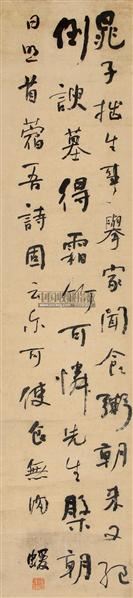 晁子拙生事舉家聞食粥朝來又絕
倒諛墓得霜竹可憐先生槃朝
日照苜蓿吾詩固云尔可使食無肉 蝯